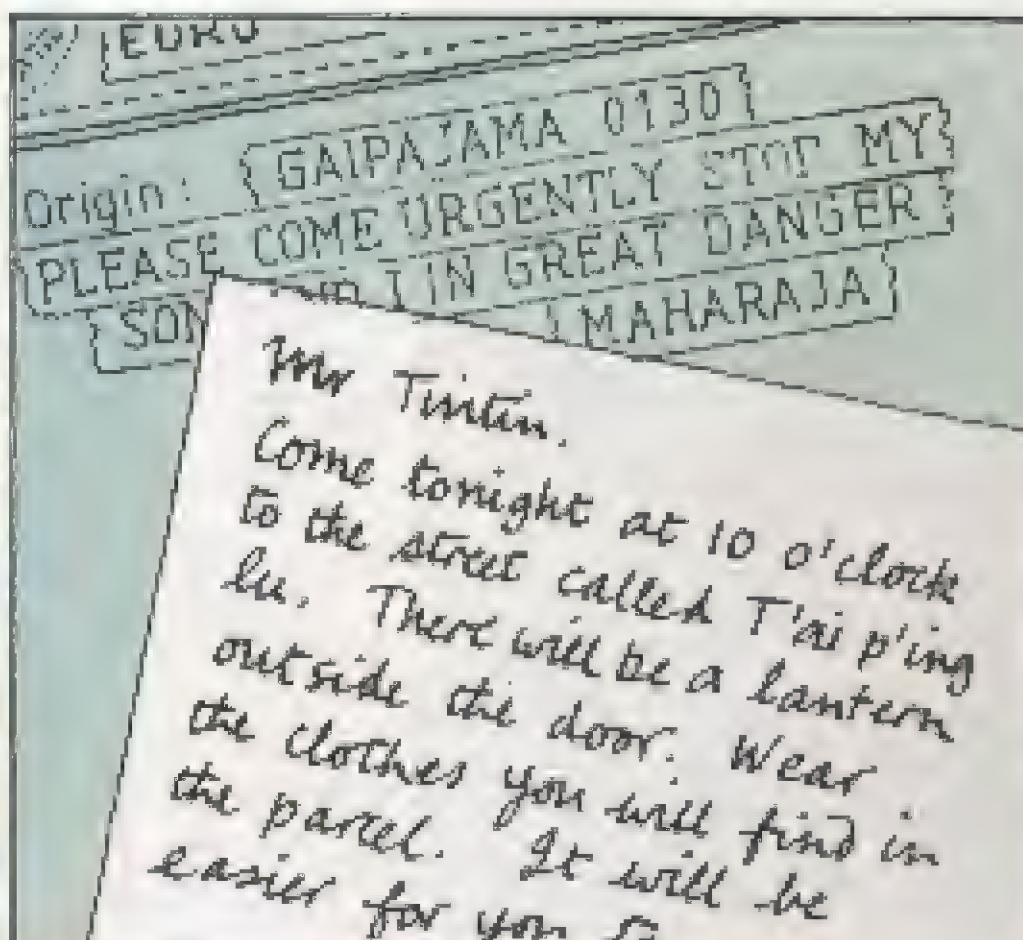 EURO
Origin: GAIPAJAMA 0130
PLEASE COME URGENTLY STOP MY
SON AND I IN GREAT DANGER
MAHARAJA
Mr Tintin.
Come tonight at 10 o'clock
to the street called T'ai p'ing
lu. There will be a lantern
outside the door. Wear
the clothes you will find in
the parcel. It will be
easier for you